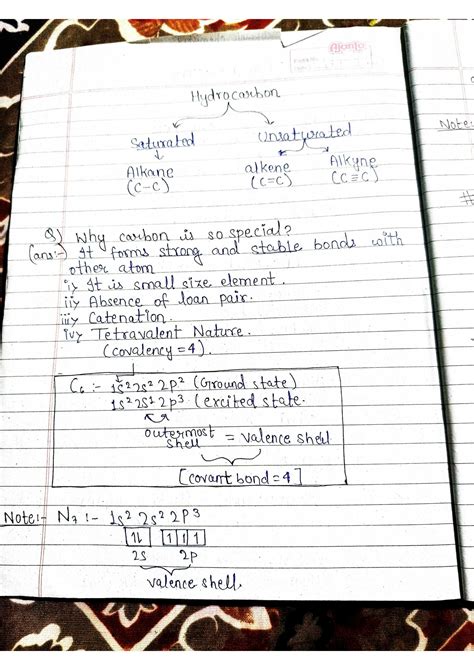 Hydrocarbon
Saturated Unsaturated
Alkane alkene Alkyne
(C-C) (C=C) (C≡C)
Q) Why carbon is so special?
(ans:-) It forms strong and stable bonds with
other atom
i) It is small size element.
ii) Absence of loan pair.
iii) Catenation.
iv) Tetravalent Nature.
(covalency = 4).
C₆ :- 1s² 2s² 2p² (Ground state)
1s² 2s1 2p³ (excited state.
outermost
shell = valence shell
[covant bond = 4]
Note:- N₇ :- 1s² 2s² 2p³
1L 1 1 1
2s 2p
valence shell.
Note: